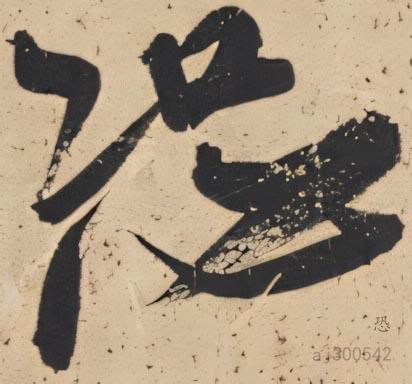 恐
恐
a1300542